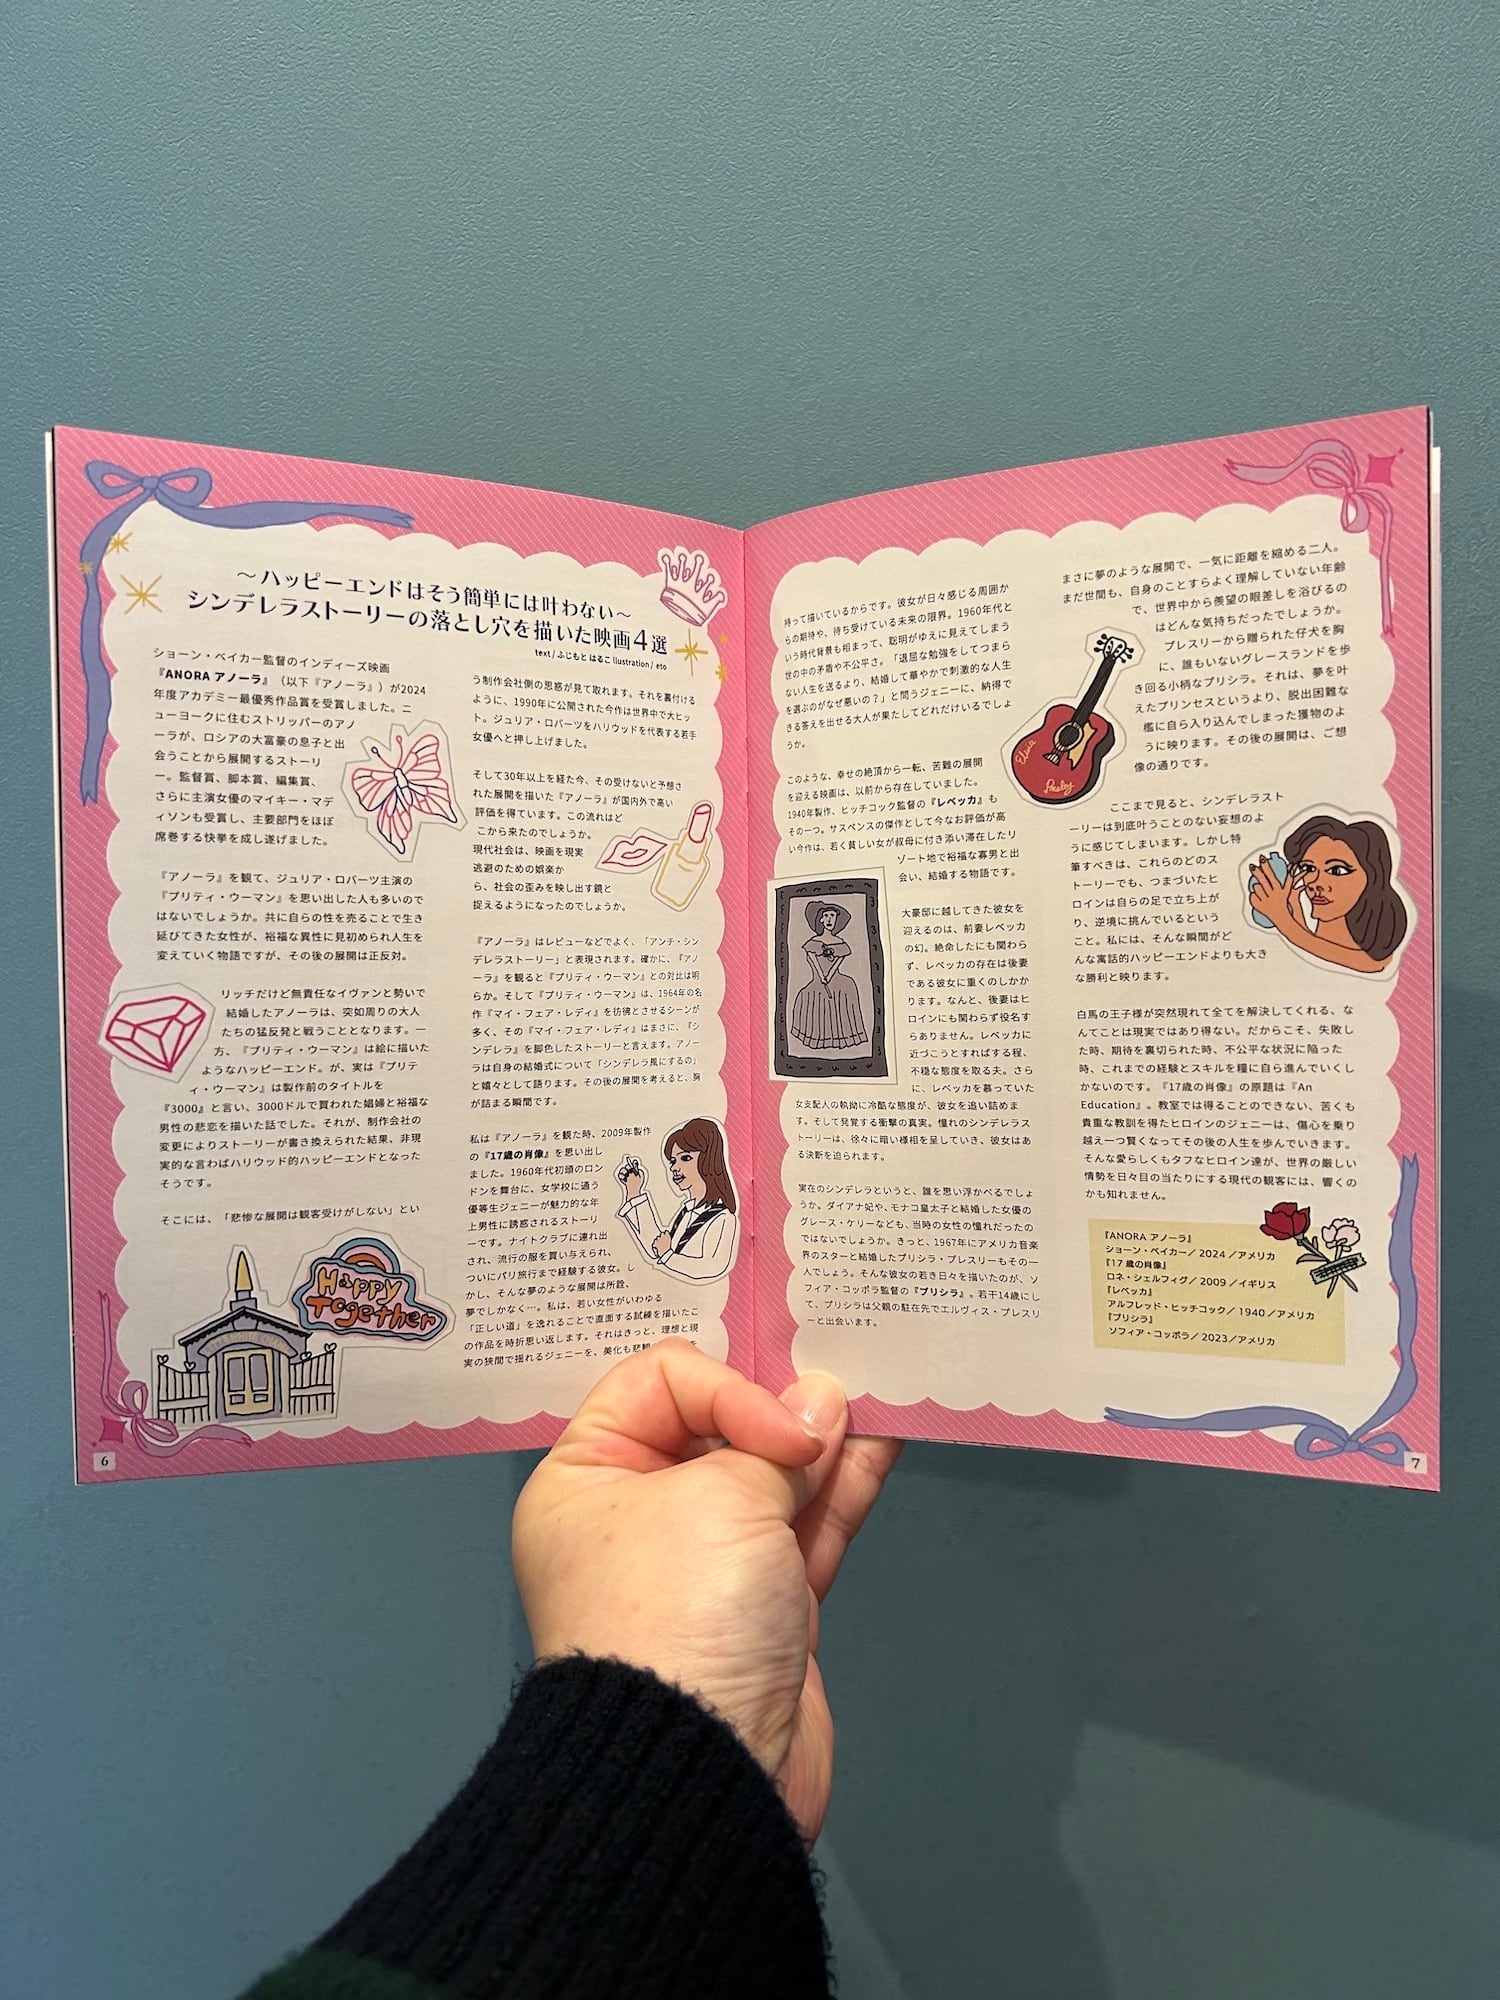 ～ハッピーエンドはそう簡単には叶わない～
シンデレラストーリーの落とし穴を描いた映画4選
text / ふじもと はるこ Ilustration / eto
ショーン・ベイカー監督のインディーズ映画
『ANORA アノーラ』（以下『アノーラ』）が2024
年度アカデミー最優秀作品賞を受賞しました。ニ
ューヨークに住むストリッパーのアノ
ーラが、ロシアの大富豪の息子と出
会うことから展開するストーリ
ー。監督賞、脚本賞、編集賞、
さらに主演女優のマイキー・マデ
ィソンも受賞し、主要部門をほぼ
席巻する快挙を成し遂げました。
『アノーラ』を観て、ジュリア・ロバーツ主演の
『プリティ・ウーマン』を思い出した人も多いので
はないでしょうか。共に自らの性を売ることで生き
延びてきた女性が、裕福な異性に見初められ人生を
変えていく物語ですが、その後の展開は正反対。
リッチだけど無責任なイヴァンと勢いで
結婚したアノーラは、突如周りの大人
たちの猛反発と戦うこととなります。一
方、『プリティ・ウーマン』は絵に描いた
ようなハッピーエンド。が、実は『プリテ
ィ・ウーマン』は製作前のタイトルを
『3000』と言い、3000ドルで買われた娼婦と裕福な
男性の悲恋を描いた話でした。それが、制作会社の
変更によりストーリーが書き換えられた結果、非現
実的な言わばハリウッド的ハッピーエンドとなった
そうです。
そこには、「悲惨な展開は観客受けがしない」とい
Happy
Together
6
う制作会社側の思惑が見て取れます。それを裏付ける
ように、1990年に公開された今作は世界中で大ヒッ
ト。ジュリア・ロバーツをハリウッドを代表する若手
女優へと押し上げました。
そして30年以上を経た今、その受けないと予想さ
れた展開を描いた『アノーラ』が国内外で高い
評価を得ています。この流れはど
こから来たのでしょうか。
現代社会は、映画を現実
逃避のための娯楽か
ら、社会の歪みを映し出す鏡と
捉えるようになったのでしょうか。
『アノーラ』はレビューなどでよく、「アンチ・シン
デレラストーリー」と表現されます。確かに、『アノ
ーラ』を観ると『プリティ・ウーマン』との対比は明
らか。そして『プリティ・ウーマン』は、1964年の名
作『マイ・フェア・レディ』を彷彿とさせるシーンが
多く、その『マイ・フェア・レディ』はまさに、『シ
ンデレラ』を脚色したストーリーと言えます。アノー
ラは自身の結婚式について「シンデレラ風にするの」
と嬉々として語ります。その後の展開を考えると、胸
が詰まる瞬間です。
私は『アノーラ』を観た時、2009年製作
の『17歳の肖像』を思い出し
ました。1960年代初頭のロン
ドンを舞台に、女学校に通う
優等生ジェニーが魅力的な年
上男性に誘惑されるストーリ
ーです。ナイトクラブに連れ出
され、流行の服を買い与えられ、
ついにパリ旅行まで経験する彼女。し
かし、そんな夢のような展開は所詮、
夢でしかなく…。私は、若い女性がいわゆる
「正しい道」を逸れることで直面する試練を描いたこ
の作品を時折思い返します。それはきっと、理想と現
実の狭間で揺れるジェニーを、美化も
持って描いているからです。彼女が日々感じる周囲か
らの期待や、待ち受けている未来の限界。1960年代と
いう時代背景も相まって、聡明がゆえに見えてしまう
世の中の矛盾や不公平さ。「退屈な勉強をしてつまら
ない人生を送るより、結婚して華やかで刺激的な人生
を選ぶのがなぜ悪いの？」と問うジェニーに、納得で
きる答えを出せる大人が果たしてどれだけいるでしょ
うか。
このような、幸せの絶頂から一転、苦難の展開
を迎える映画は、以前から存在していました。
1940年製作、ヒッチコック監督の『レベッカ』も
その一つ。サスペンスの傑作として今なお評価が高
い今作は、若く貧しい女が叔母に付き添い滞在したリ
ゾート地で裕福な寡男と出
会い、結婚する物語です。
大豪邸に越してきた彼女を
迎えるのは、前妻レベッカ
の幻。絶命したにも関わら
ず、レベッカの存在は後妻
である彼女に重くのしかか
ります。なんと、後妻はヒ
ロインにも関わらず役名す
らありません。レベッカに
近づこうとすればする程、
不穏な態度を取る夫。さら
に、レベッカを慕っていた
女支配人の執拗に冷酷な態度が、彼女を追い詰めま
す。そして発覚する衝撃の真実。憧れのシンデレラス
トーリーは、徐々に暗い様相を呈していき、彼女はあ
る決断を迫られます。
実在のシンデレラというと、誰を思い浮かべるでしょ
うか。ダイアナ妃や、モナコ皇太子と結婚した女優の
グレース・ケリーなども、当時の女性の憧れだったの
ではないでしょうか。きっと、1967年にアメリカ音楽
界のスターと結婚したプリシラ・プレスリーもその一
人でしょう。そんな彼女の若き日々を描いたのが、ソ
フィア・コッポラ監督の『プリシラ』。若干14歳にし
て、プリシラは父親の駐在先でエルヴィス・プレスリ
ーと出会います。
まさに夢のような展開で、一気に距離を縮める二人。
まだ世間も、自身のことすらよく理解していない年齢
で、世界中から羨望の眼差しを浴びるの
はどんな気持ちだったでしょうか。
プレスリーから贈られた仔犬を胸
に、誰もいないグレースランドを歩
き回る小柄なプリシラ。それは、夢を叶
えたプリンセスというより、脱出困難な
檻に自ら入り込んでしまった獲物のよ
うに映ります。その後の展開は、ご想
像の通りです。
Elvis
Presley
ここまで見ると、シンデレラスト
ーリーは到底叶うことのない妄想のよ
うに感じてしまいます。しかし特
筆すべきは、これらのどのス
トーリーでも、つまづいたヒ
ロインは自らの足で立ち上が
り、逆境に挑んでいるという
こと。私には、そんな瞬間がど
んな寓話的ハッピーエンドよりも大き
な勝利と映ります。
白馬の王子様が突然現れて全てを解決してくれる、な
んてことは現実ではあり得ない。だからこそ、失敗し
た時、期待を裏切られた時、不公平な状況に陥った
時、これまでの経験とスキルを糧に自ら進んでいくし
かないのです。『17歳の肖像』の原題は『An
Education』。教室では得ることのできない、苦くも
貴重な教訓を得たヒロインのジェニーは、傷心を乗り
越え一つ賢くなってその後の人生を歩んでいきます。
そんな愛らしくもタフなヒロイン達が、世界の厳しい
情勢を日々目の当たりにする現代の観客には、響くの
かも知れません。
『ANORA アノーラ』
ショーン・ベイカー／2024／アメリカ
『17歳の肖像』
ロネ・シェルフィグ／2009／イギリス
『レベッカ』
アルフレッド・ヒッチコック／1940／アメリカ
『プリシラ』
ソフィア・コッポラ／2023／アメリカ
7